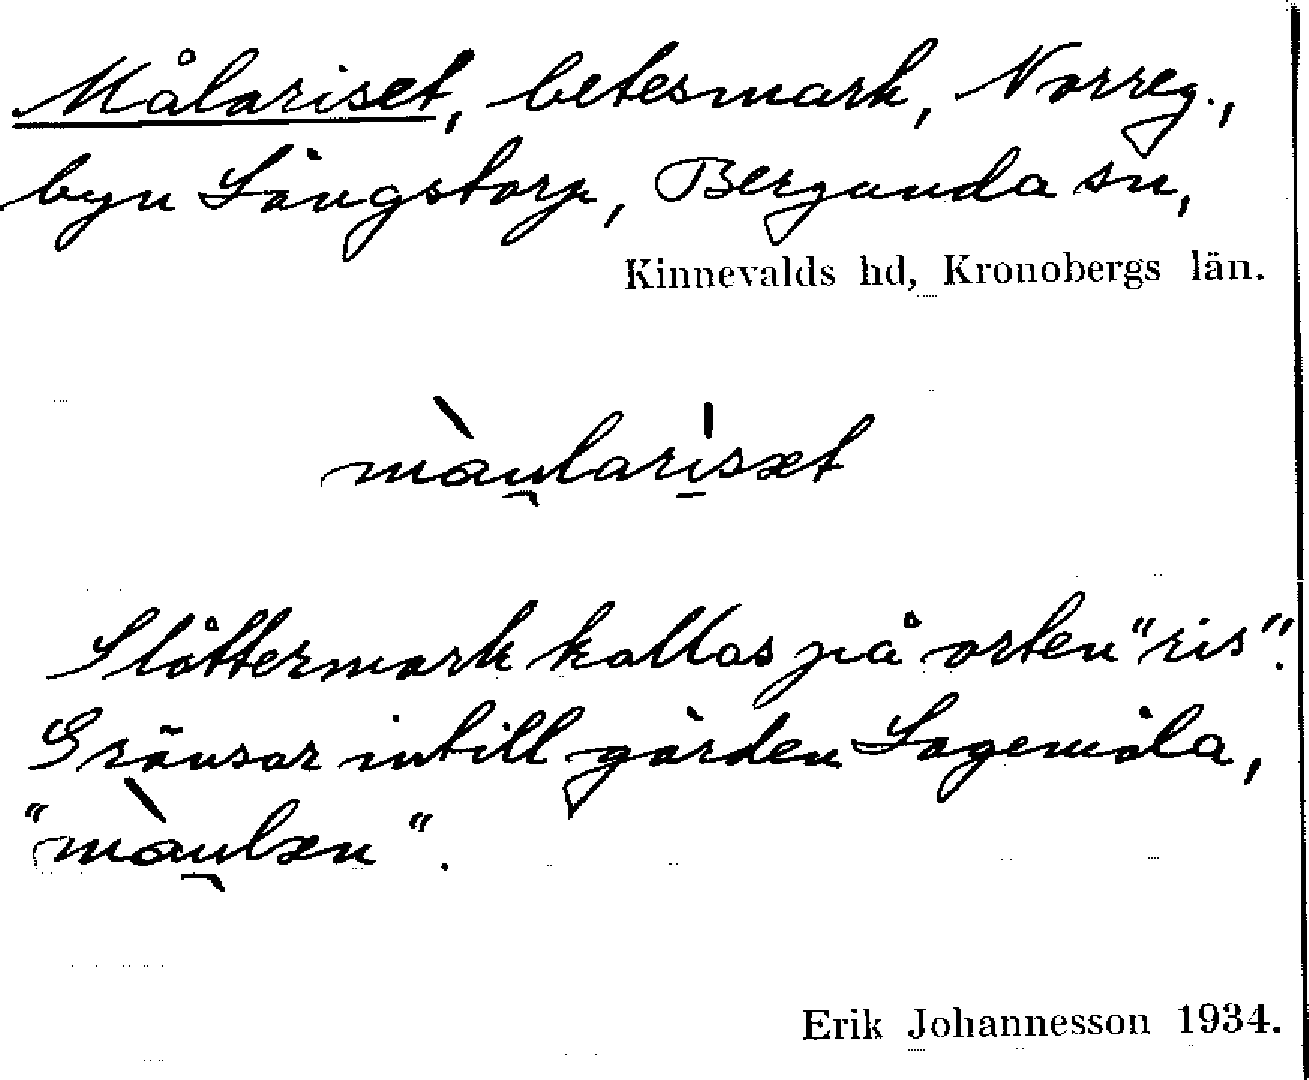 Målariset, betesmark, Norreg.,
byn Långstorp, Bergunda sn,
Kinnevalds hd, Kronobergs län.
màu̯larisæt
Slåttermark kallas på orten "ris".
Gränsar intill gården Lagemåla,
"màu̯læn".
Erik Johannesson 1934.